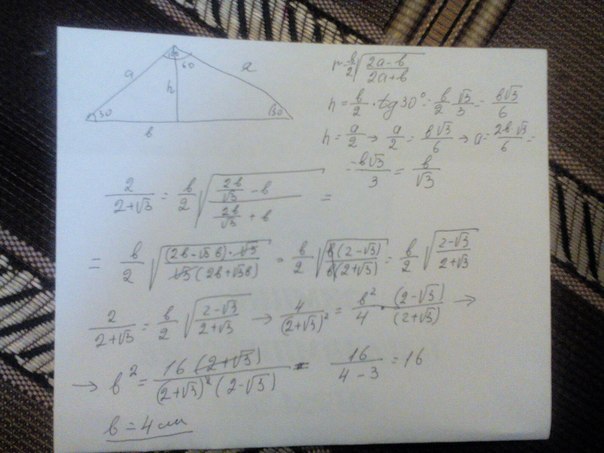 60
a
a
h
30
30
b
r = b/2 √((2a-b)/(2a+b))
h = b/2 · tg30° = b/2 · √3/3 = b√3/6
h = a/2 → a/2 = b√3/6 → a = 2b√3/6 =
= b√3/3 = b/√3
2/(2+√3) = b/2 √((2b/√3 - b)/(2b/√3 + b)) =
= b/2 √((2b-√3b)·√3/(√3(2b+√3b))) = b/2 √(b(2-√3)/(b(2+√3))) = b/2 √((2-√3)/(2+√3))
2/(2+√3) = b/2 √((2-√3)/(2+√3)) → 4/(2+√3)² = b²/4 · (2-√3)/(2+√3) →
→ b² = 16(2+√3)/((2+√3)²(2-√3)) = 16/(4-3) = 16
b = 4 см